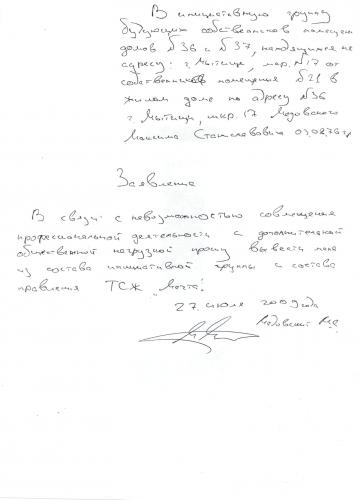 В инициативную группу
будующих собственников помещен
домов №36 и №37, находящихся по
адресу: г. Мытищи, мкр. №17 от
собственника помещения №21 в
жилом доме по адресу №36
г. Мытищи, мкр. 17
Максима Станиславовича 03.08.76 г.р
Заявление
В связи с невозможностью совмещения
профессиональной деятельности с дополнительной
общественной нагрузкой прошу вывести меня
из состава инициативной группы и состава
правления ТСЖ "Мечта".
27 июля 2009 года